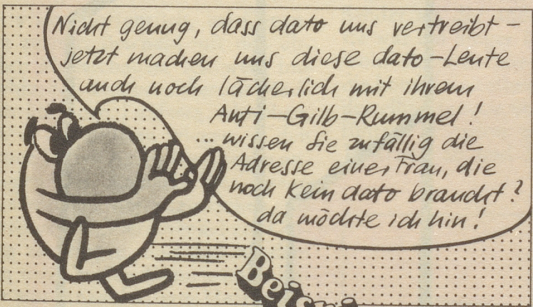 Nicht genug, dass dato uns vertreibt –
jetzt machen uns diese dato-Leute
auch noch lächerlich mit ihrem
Anti-Gilb-Rummel!
...wissen Sie zufällig die
Adresse einer Frau, die
noch kein dato braucht?
da möchte ich hin!